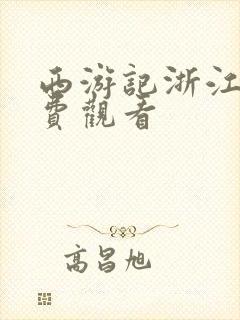 西游記浙江
費觀看
高昌旭